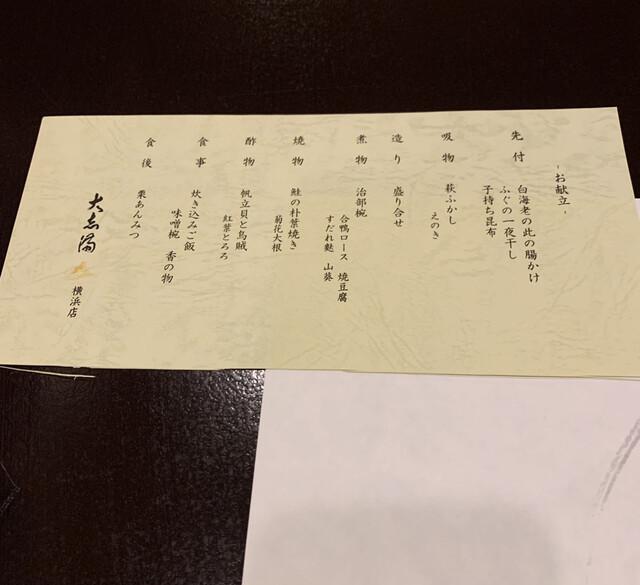 - お献立 -
先付
白海老の此の腸かけ
ふぐの一夜干し
子持ち昆布
吸物
萩ふかし
えのき
造り 盛り合せ
煮物 治部椀
合鴨ロース 焼豆腐
すだれ麩 山葵
焼物 鮭の朴葉焼き
菊花大根
酢物 帆立貝と烏賊
紅葉とろろ
食事 炊き込みご飯
味噌椀 香の物
食後 栗あんみつ
大志満
横浜店